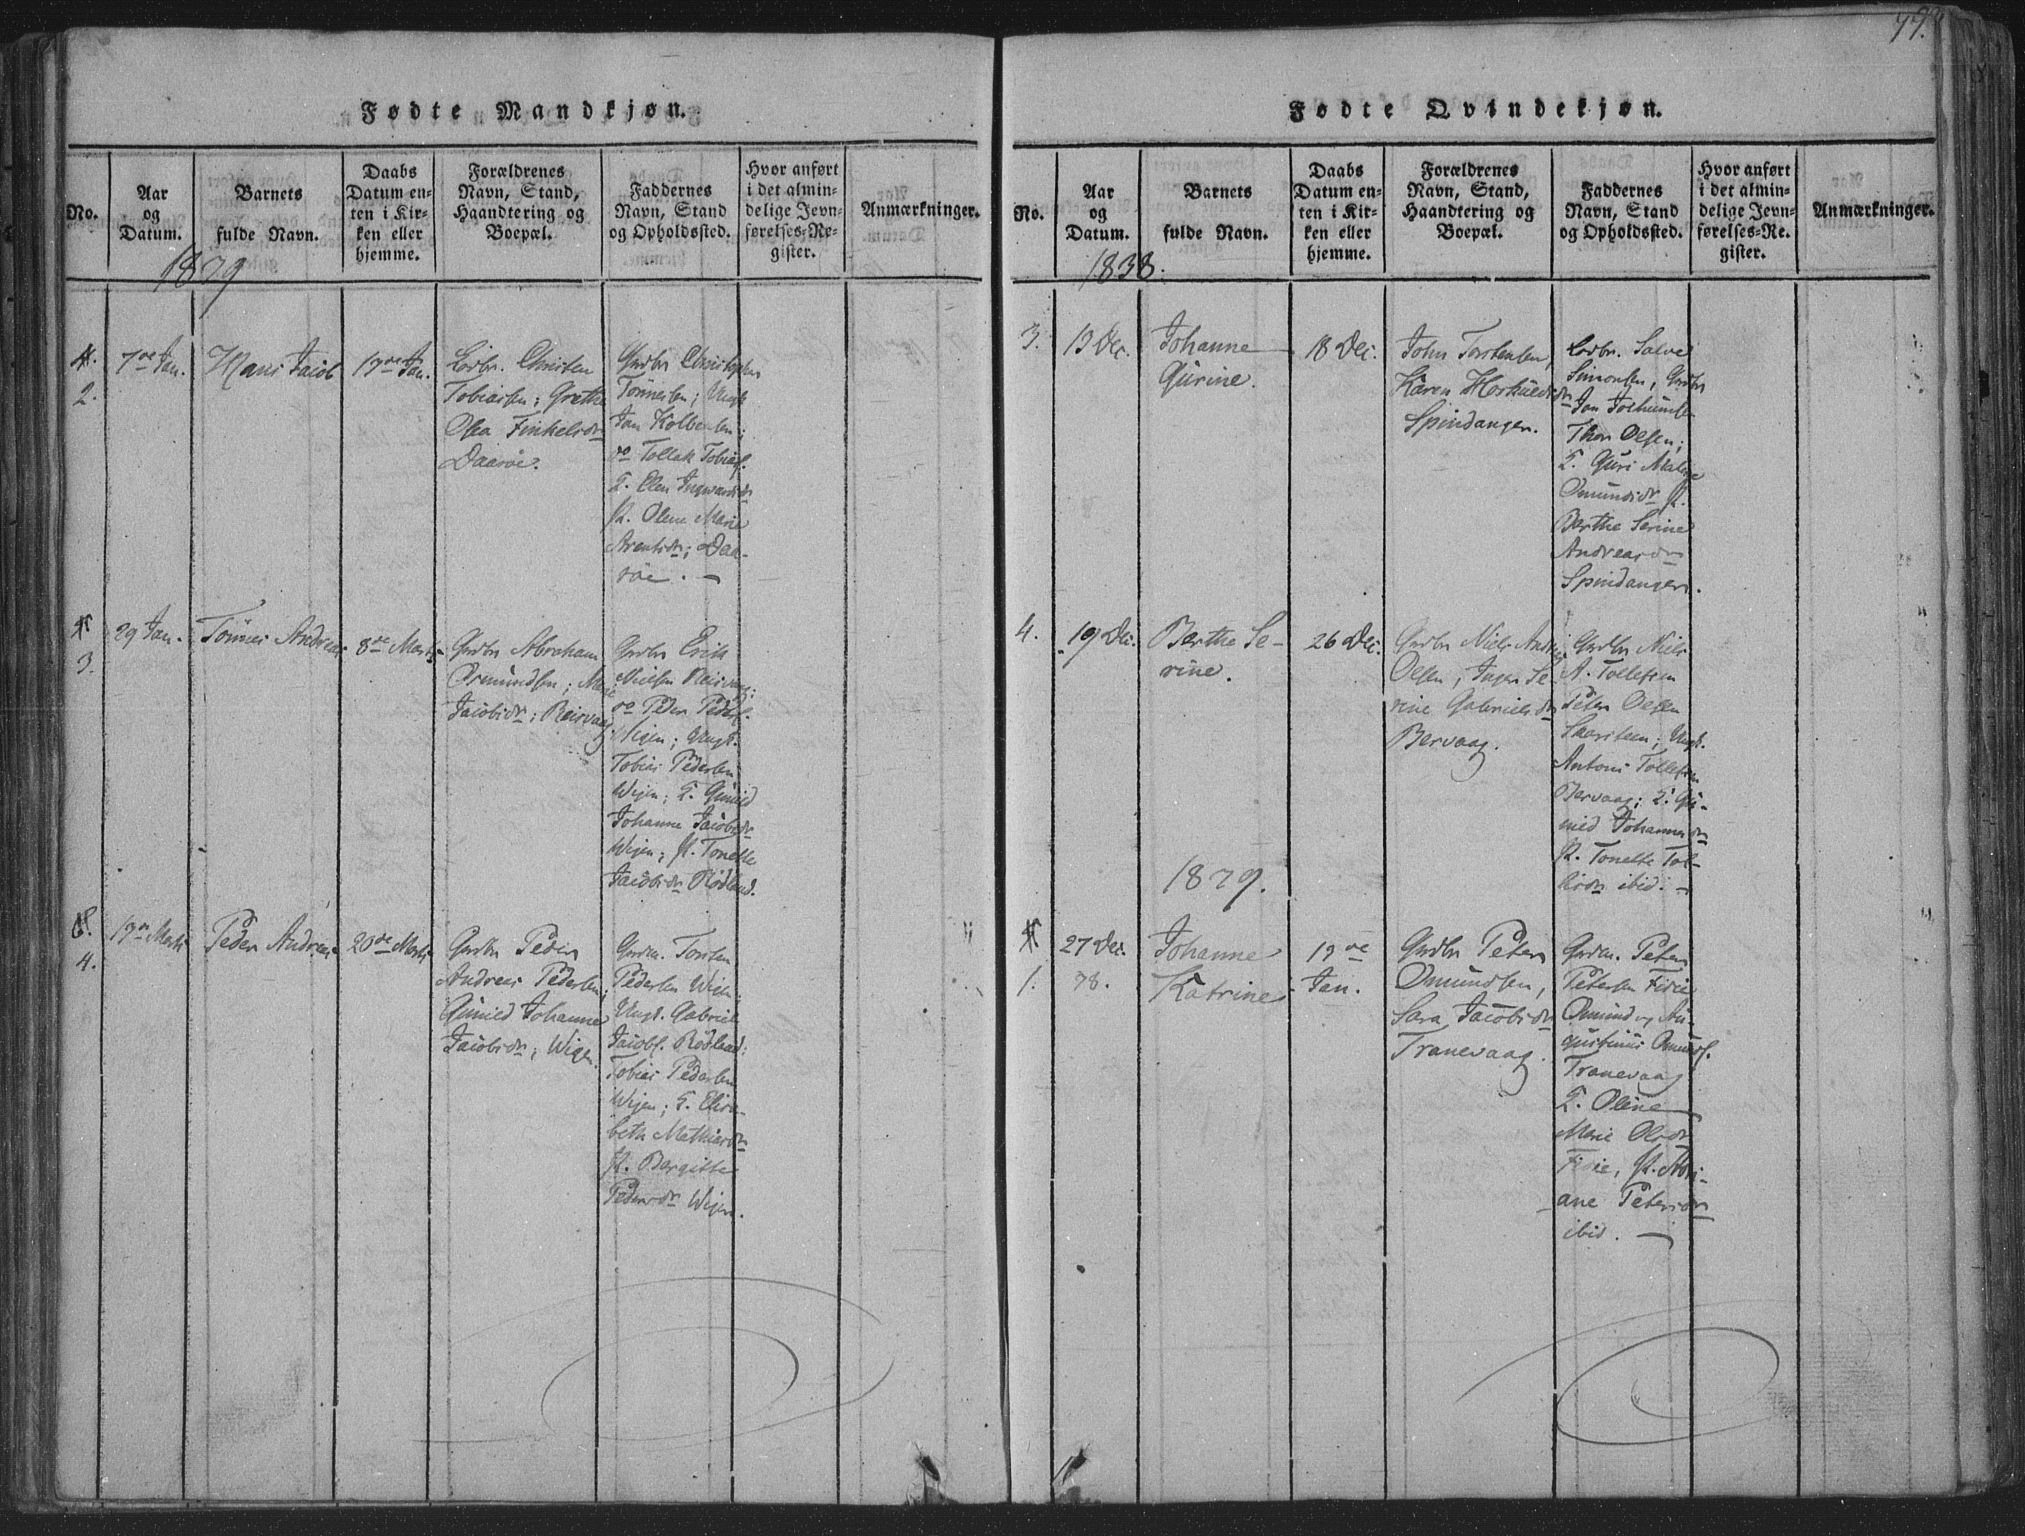 79.
Fødte Mandkjøn.
No.
Aar
og
Datum.
Barnets
fulde Navn.
Daabs
Datum en-
ten i Kir-
ken eller
hjemme.
Forældrenes
Navn, Stand,
Haandtering og
Boepæl.
Faddernes
Navn, Stand
og Opholdssted.
Hvor anført
i det almin-
delige Jevn-
førelses-Re-
gister.
Anmærkninger.
1839
2.
7de Jan.
Hans Jacob
13de Jan.
Lodbr. Christen
Tobiassen; Grethe
Olea Finkelsdr
Daarøe.
Grdbr Christopher
Tönnessen; Ungk.
Jan Kolbensen;
do Tollak Tobiasf.
K. Elen Ingwardsdr
P. Olene Marie
Arentsdr; Daa-
röe. —
3.
29 Jan.
Tönnes Andreas
8de Marts
Grdbr Abraham
Osmundsen; Marie
Jacobsdr; Reisvaag
Grdbr Erich
Nielsen Reisvaag;
do Peder Pedersf.
Wigen; Ungk.
Tobias Pedersen
Wigen; K. Gunild
Johanne Jacobsdr
Wigen; P. Tonette
Jacobsdr Rödland.
4.
17de Marts
Peder Andreas
20de Marts
Grdbr Peder
Andreas Pedersen;
Gunild Johanne
Jacobsdr; Wigen.
Grdm. Torsten
Pedersen Wigen;
Ungk. Gabriel
Jacobf. Rödland;
Tobias Pedersen
Wigen; K. Elisa-
beth Mathiasdr
P. Bergitte
Pedersdr Wigen.
Fødte Qvindekjøn.
No.
Aar
og
Datum.
Barnets
fulde Navn.
Daabs
Datum en-
ten i Kir-
ken eller
hjemme.
Forældrenes
Navn, Stand,
Haandtering og
Boepæl.
Faddernes
Navn, Stand
og Opholdssted.
Hvor anført
i det almin-
delige Jevn-
førelses-Re-
gister.
Anmærkninger.
1838.
3.
13 Dec.
Johanne
Gurine.
18 Dec.
John Torstensen,
Karen Hoskuldsdr
Spindanger.
Lodbr. Salve
Simonsen, Grdbr
Jan Jochumsen
Thor Olsen;
K. Guri Malene
Omundsdr P.
Berthe Serine
Andreasdr
Spindanger.
4.
19 Dec.
Berthe Se-
rine.
26 Dec.
Grdbr Niels Andreas
Olsen, Inger Se-
rine Gabrielsdr
Bervaag.
Grdbr Niels
A. Tollefsen
Peter Olsen
Saarsteen; Ungk.
Antoni Tollefsen
Bervaag; K. Gu-
nild Johannesdr
P. Tonette Tol-
lefsdr ibid. —
1839.
1.
27 Dec.
38.
Johanne
Katrine
13de
Jan.
Grdbr Peter
Omundsen,
Sara Jacobsdr
Tranevaag.
Grdm. Peter
Petersen Fidie
Omund og Au-
gustinus Omundsf.
Tranevaag
K. Oline
Marie Olsdr
Fidie, P. Adri-
ane Petersdr
ibid. —